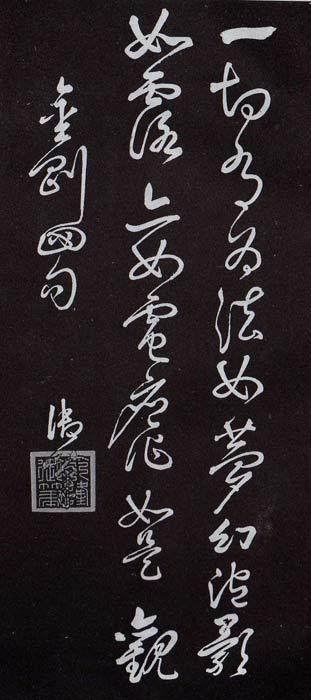 一切有為法如夢幻泡影
如露亦如電應作如是觀
金剛四句